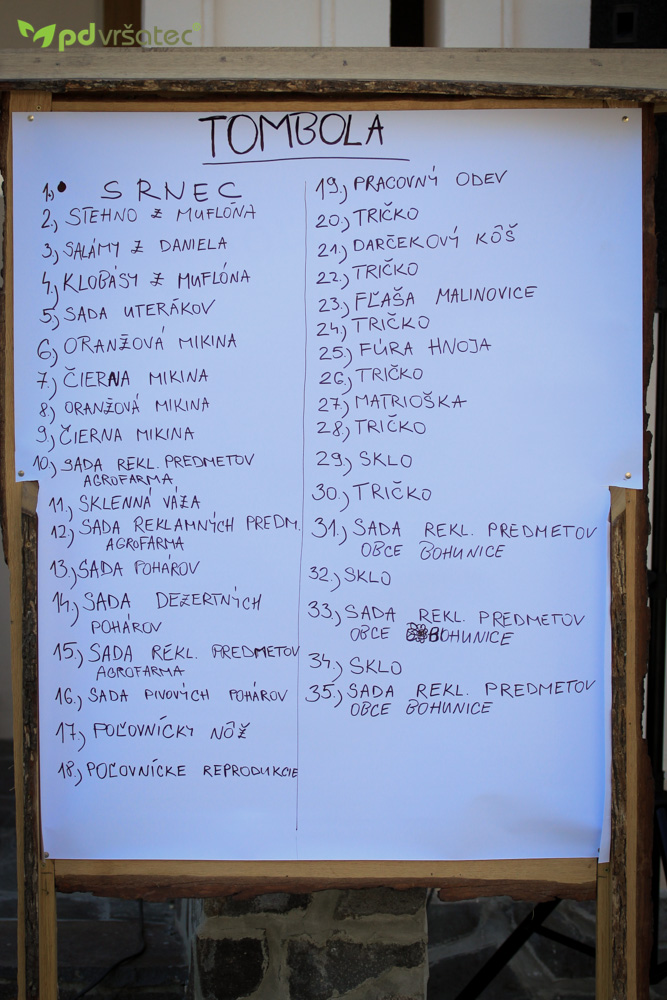 pdvršatec
TOMBOLA
1.) SRNEC
2.) STEHNO Z MUFLÓNA
3.) SALÁMY Z DANIELA
4.) KLOBÁSY Z MUFLÓNA
5.) SADA UTERÁKOV
6.) ORANŽOVÁ MIKINA
7.) ČIERNA MIKINA
8.) ORANŽOVÁ MIKINA
9.) ČIERNA MIKINA
10.) SADA REKL. PREDMETOV
AGROFARMA
11.) SKLENNÁ VÁZA
12.) SADA REKLAMNÝCH PREDM.
AGROFARMA
13.) SADA POHÁROV
14.) SADA DEZERTNÝCH
POHÁROV
15.) SADA REKL. PREDMETOV
AGROFARMA
16.) SADA PIVOVÝCH POHÁROV
17.) POĽOVNÍCKY NÔŽ
18.) POĽOVNÍCKE REPRODUKCIE
19.) PRACOVNÝ ODEV
20.) TRIČKO
21.) DARČEKOVÝ KÔŠ
22.) TRIČKO
23.) FĽAŠA MALINOVICE
24.) TRIČKO
25.) FÚRA HNOJA
26.) TRIČKO
27.) MATRIOŠKA
28.) TRIČKO
29.) SKLO
30.) TRIČKO
31.) SADA REKL. PREDMETOV
OBCE BOHUNICE
32.) SKLO
33.) SADA REKL. PREDMETOV
OBCE BOHUNICE
34.) SKLO
35.) SADA REKL. PREDMETOV
OBCE BOHUNICE